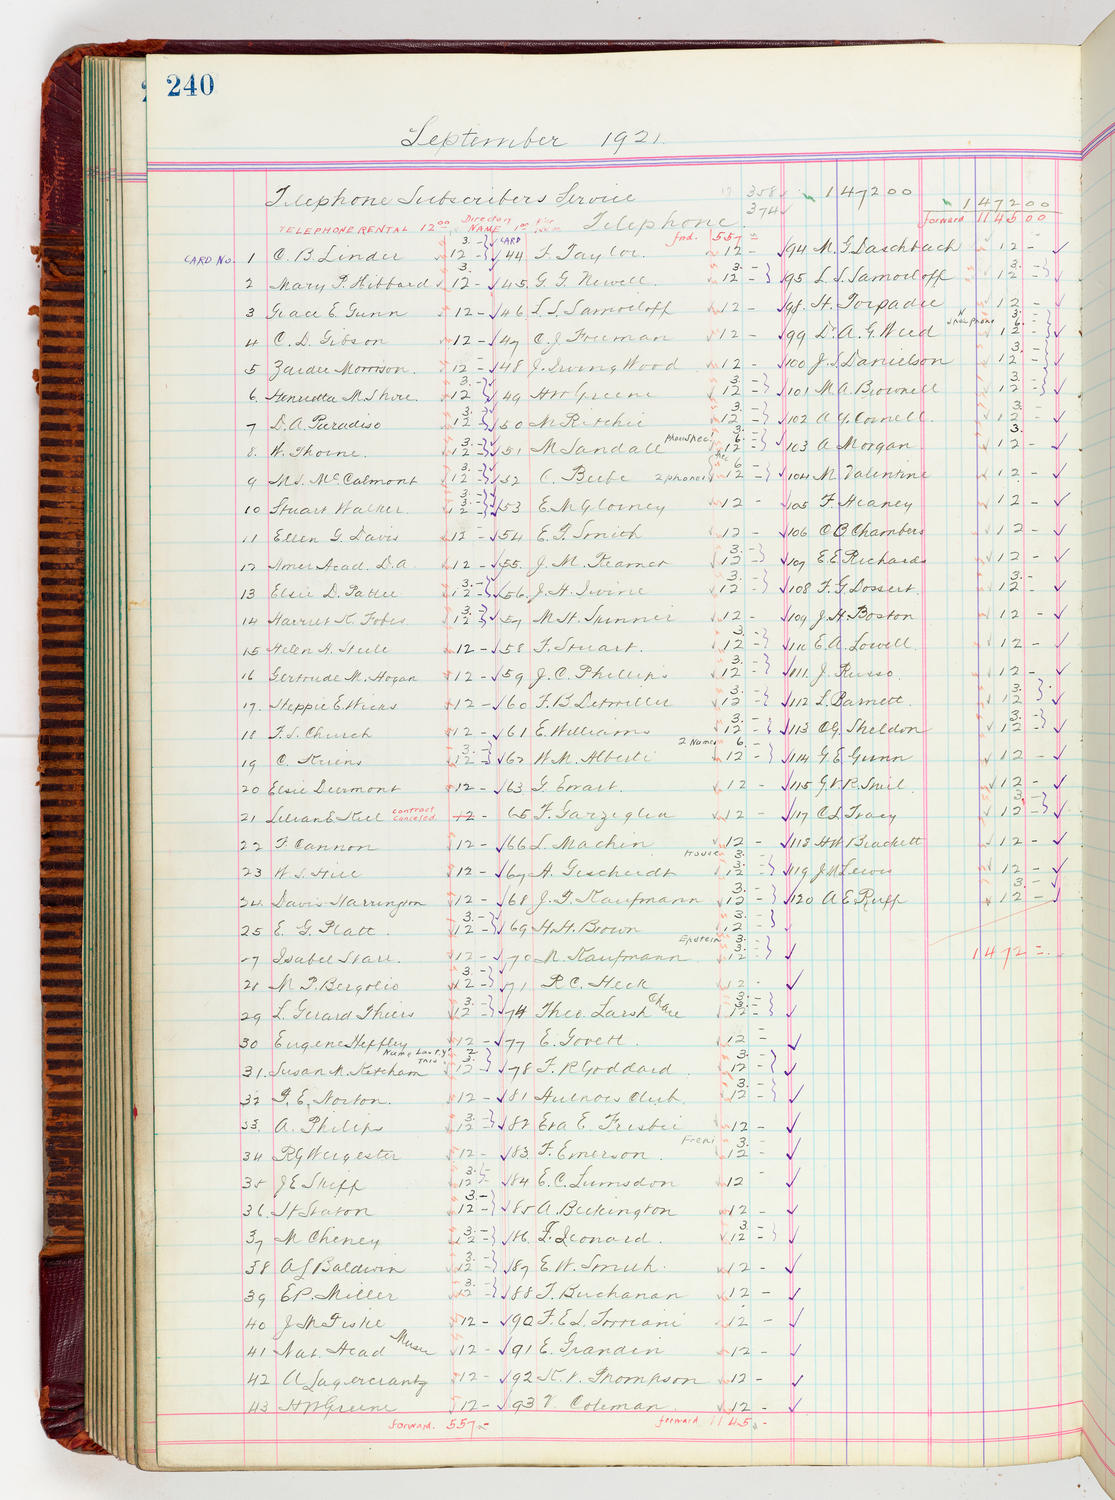 240
September 1921.
Telephone Subscribers Service
358
147200
374
147200
Telephone
TELEPHONE RENTAL 12 00 Directory NAME 1 00
forward 114500
fwd. 557 =
CARD No. CARD
1 C. B. Linder 3.- 12 -
2 Mary P. Hibbard 3. 12 -
3 Grace E. Gunn 12 -
4 C. D. Gibson 12 -
5 Zaidee Morrison. 12 -
6. Henrietta M. Shore. 3.- 12
7 D. A. Paradiso 3. 12 -
8. H. Thorne. 3.- 12 -
9 Ms. McCalmont 3.- 12 -
10 Stuart Walker. 3.- 3.- 12 -
11 Ellen G. Davis 12 -
12 Amer Acad. D. A. 12 -
13 Elsie D. Pattee 3.- 12 -
14 Harriet K. Fobes 3.- 12 -
15 Helen H. Steele 12 -
16 Gertrude M. Hogan 12 -
17. Heppie E. Wicks 12 -
18 F. S. Church 12 -
19 C. Keens 3.- 12 -
20 Elsie Dermont 12 -
21 Lilian E Keel contract canceled. 12 -
22 F. Cannon 12 -
23 W. S. Hill 12 -
24. Davis Harrington 12 -
25 E. G. Platt. 3.- 12 -
27 Isabel Starr. 12 -
28 M P. Bergolio 3.- 12 -
29 L. Gerard Thiers 3.- 12 -
30 Eugene Heffley 12 -
Name Last yr 2 This
31. Susan N. Ketcham 3. 12 -
32 P. E. Norton. 12 -
33. A. Philips 3.- 12 -
34 R G Weigester 12 -
35 J E Shipp 3. 12 -
36. H Staton 3.- 12 -
37 M Cheney 3.- 12 -
38 A J Baldwin 3. 12 -
39 E P. Miller 3.- 12 -
40 J. M. Fiske 12 -
41 Nat. Acad Music 12 -
42 A Lagercrantz 12 -
43 H W Greene 12 -
forward. 557.-
44 F. Taylor. 12 -
45. G. G. Newell. 3.- 12 -
46 L. S. Samoiloff 12 -
47 C. J. Freeman 12 -
48 J. Irving Wood 12 -
49 H W Greene 3.- 12 -
50 M Ritchie 3.- 12 -
51 M Sandall 3.- 6.- 12 -
52 C. Beebe 2 phones 6 - 12 -
53 E. M Glorney 12 -
54 E. F. Smith 12 -
55. J. M. Kearnet 3.- 12 -
56. J. H. Irvine 3.- 12 -
57 M. H. Skinner 12 -
58 F. Stuart. 3.- 12 -
59 J. C. Phillips 3.- 12 -
60 F. B. Detwiller 3.- 12 -
61 E. Williams 3.- 12 -
2 Name 6.-
62 W. M. Alberti 12 -
63. G. Ewart. 12 -
65 F. Garziglia 12 -
66 L. Machin 12 -
House 3.-
67 A. Gescheidt 3. 12 -
68 J. F. Kaufmann 3.- 12 -
69 H. H. Brown 3.- 12 -
Epstein 3.-
70 M. Kaufmann 3.- 12 -
71 R C. Heck 12 -
74 Theo. Larsh Chase 3.- 3.- 12 -
77 E. Govett. 12 -
78 F. R Goddard. 3.- 12 -
81 Authors Club. 3.- 12 -
82 Eva E. Frisbie 12 -
83. F. Emerson. 3.- 12 -
84 E. C. Lumsdon 12
85 A. Beckington 12 -
86. F. Leonard. 3 - 12 -
87 E. W. Smith. 12 -
88 T. Buchanan 12 -
90 F. E. L. Torriani 12 -
91 E. Grandin 12 -
92 K. V. Thompson 12 -
93 V. Coleman. 12 -
forward 1145.-
94 M. G. Laschbach 12 -
95 L. S. Samoiloff 3.- 12 -
98. H. Torpadie 12 -
99 Dr A. G. Weed 3.- 6.- 12 -
100 J. S. Danielson 3.- 12 -
101 M A. Brownell 3.- 12 -
102 A Y. Cornell. 3. - 12 -
103 A Morgan 3. 12 -
104 M. Valentine 12 -
105 F. Heaney 12 -
106 C B Chambers 12 -
107 E. E. Richards 12 -
108 F. G. Dossert. 3.- 12 -
109 J. H. Boston 12 -
110 E. A. Lowell. 12 -
111. J. Russo. 12 -
112 L. Barnett. 3. 12 -
113 O G. Sheldon 3.- 12 -
114 G. E. Gunn 12 -
115 G. V. R. Shiel. 12 -
117 C L Tracy 3.- 12 -
118 H W Brackett 12 -
119 J M Lewis 12 -
120 A E Ruff 3.- 12 -
1472 =